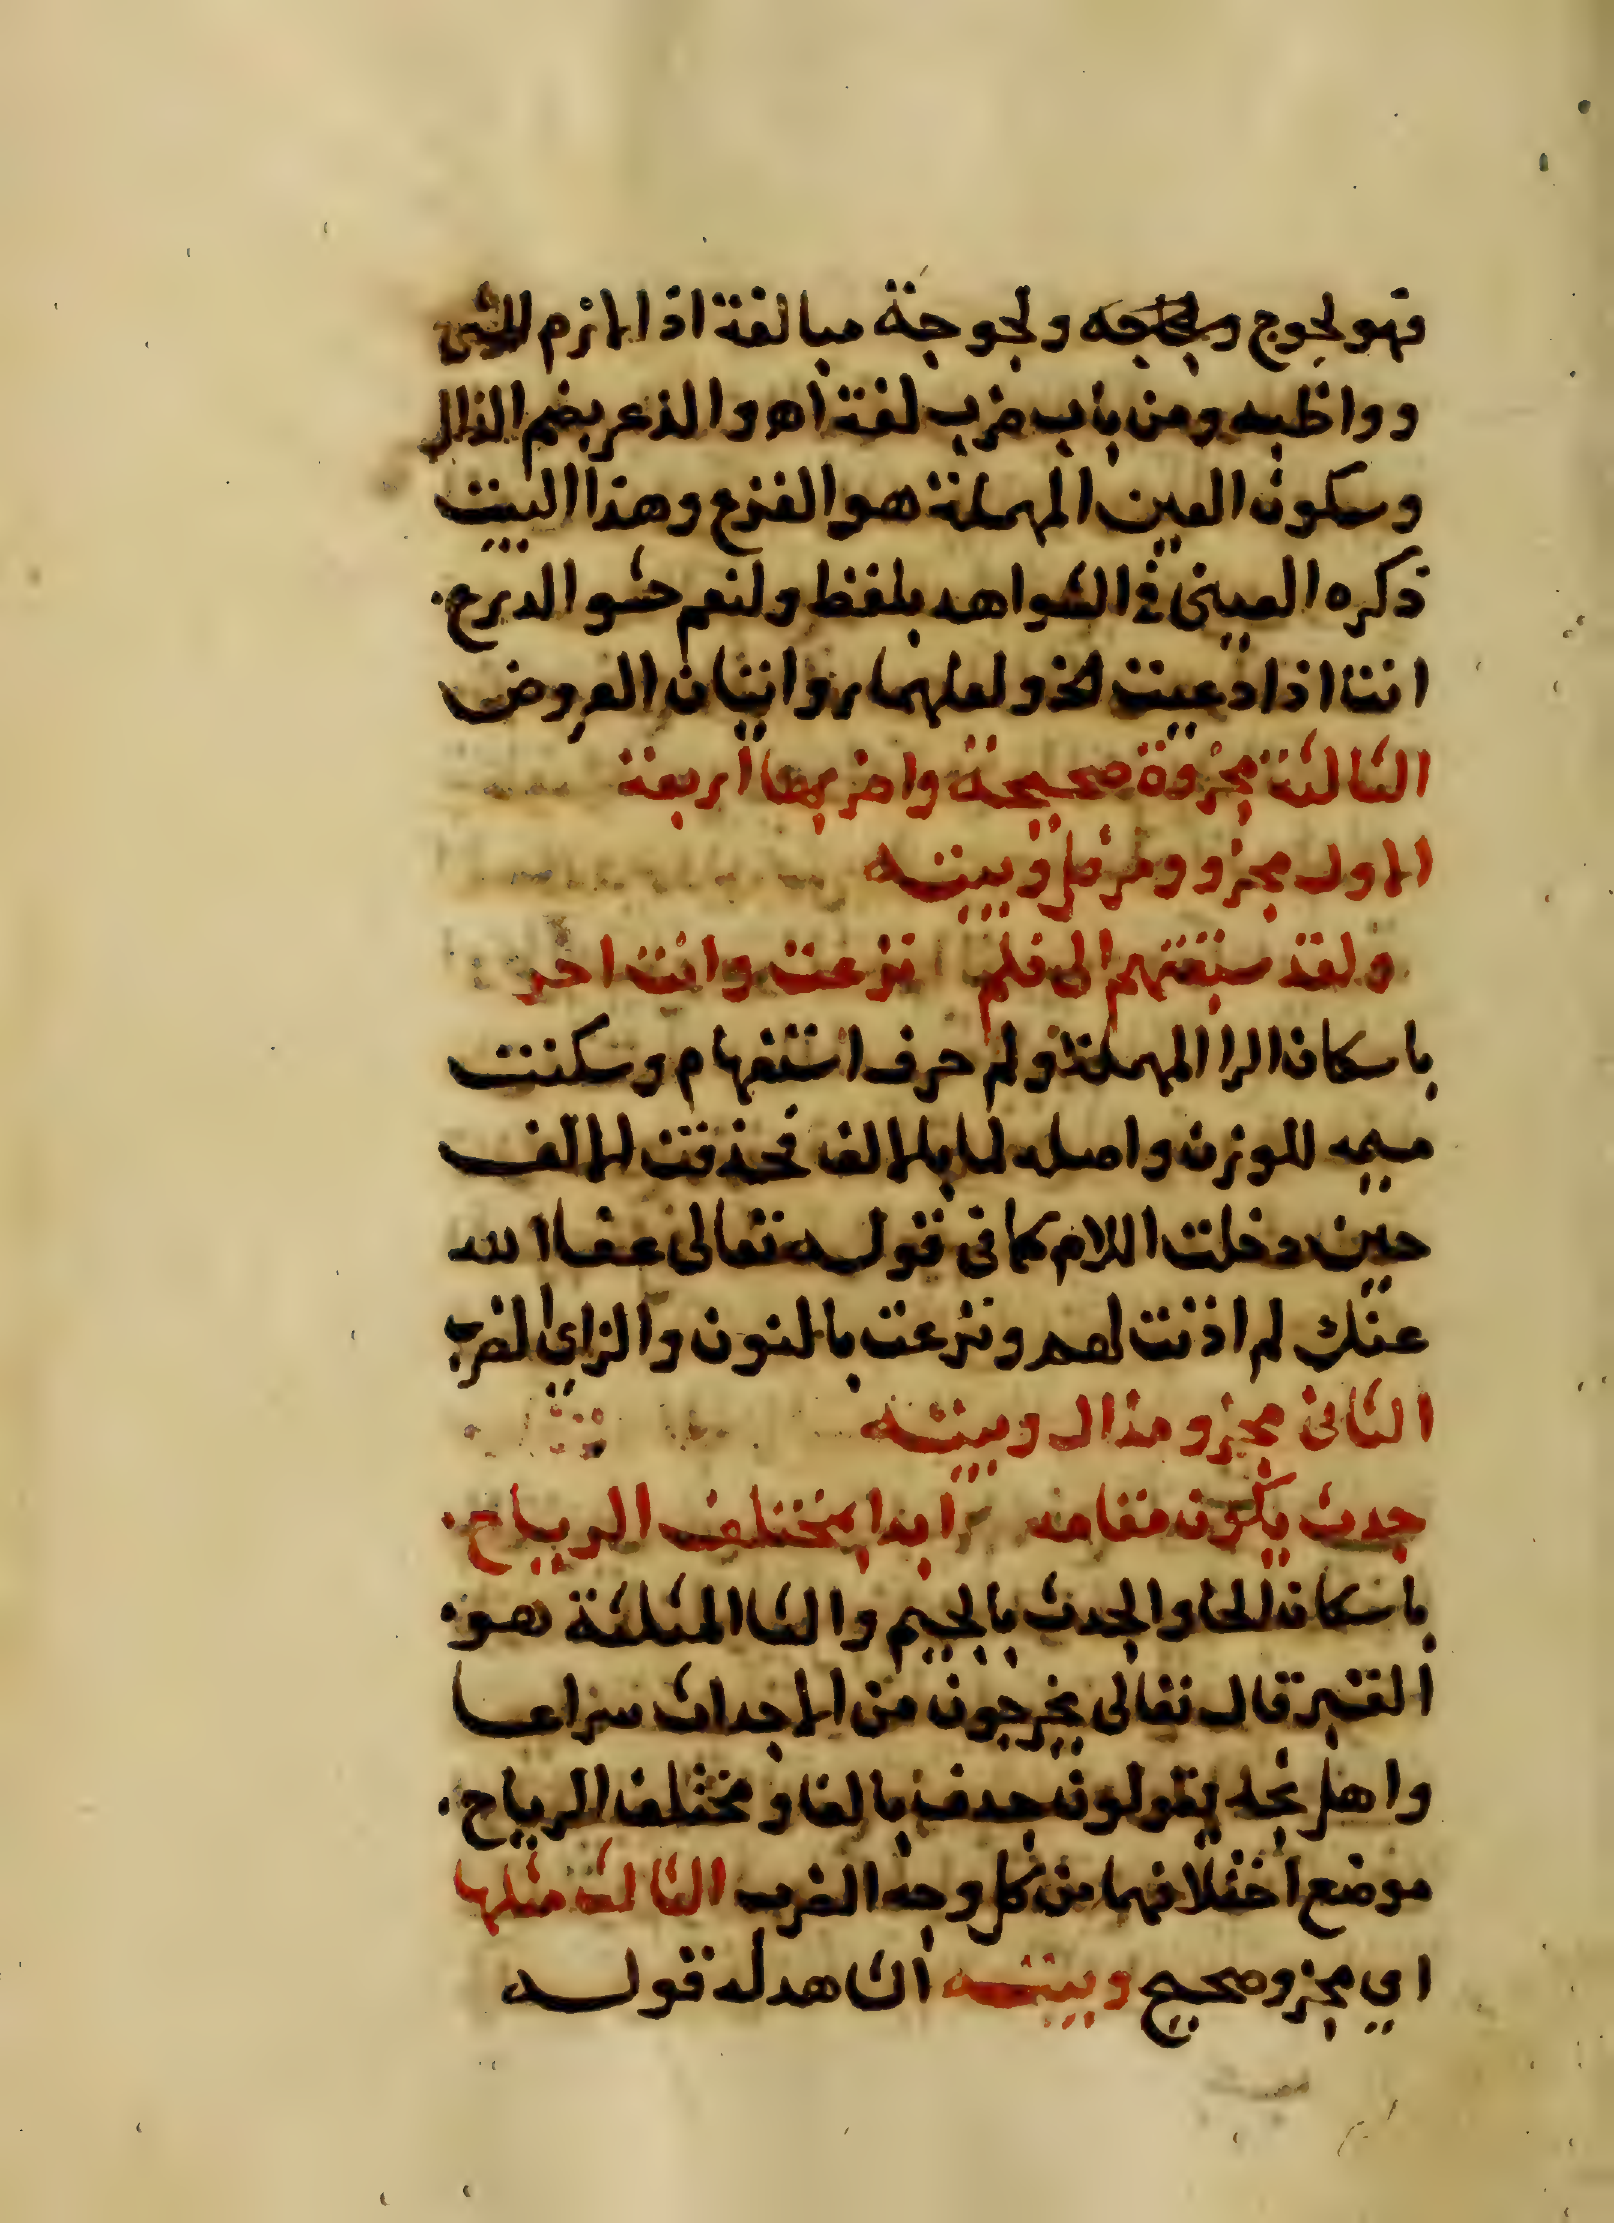 فهو لجوج ولجوجه ولجوجة مبالغة اذا لازم الشي
وواظبه ومن باب ضرب لغة اه والذعر بضم الذال
وسكون العين المهملة هو الفزع وهذا البيت
ذكره العيني في الشواهد بلفظ ولنعم حشو الدرع.
انت اذا دعيت الخ ولعلهما روايتان العروض
الثالثة مجزوة صحيحة واضربها اربعة
الاول مجزو ومرفل وبيته
ولقد سبقتهم الى فلم نزعت وانت اخر
باسكان الرا المهملة ولم حرف استفهام وسكنت
ميمه للوزن واصله لما بالالف فحذفت الالف
حين دخلت اللام كما في قوله تعالى عفا الله
عنك لم اذنت لهم ونزعت بالنون والزاي الضرب
الثاني مجزو مذال وبيته
جدث يكون مقامه ابدا بمختلف الرياح.
باسكان الحا والجدث بالجيم والثا المثلثة هو
القبر قال تعالى يخرجون من الاجداث سراعا
واهل نجد يقولون جدف بالفا ومختلف الرياح.
موضع اختلافها من كل وجه الضرب الثالث مثلها
اي مجزو صحيح وبيته الشاهد له قوله